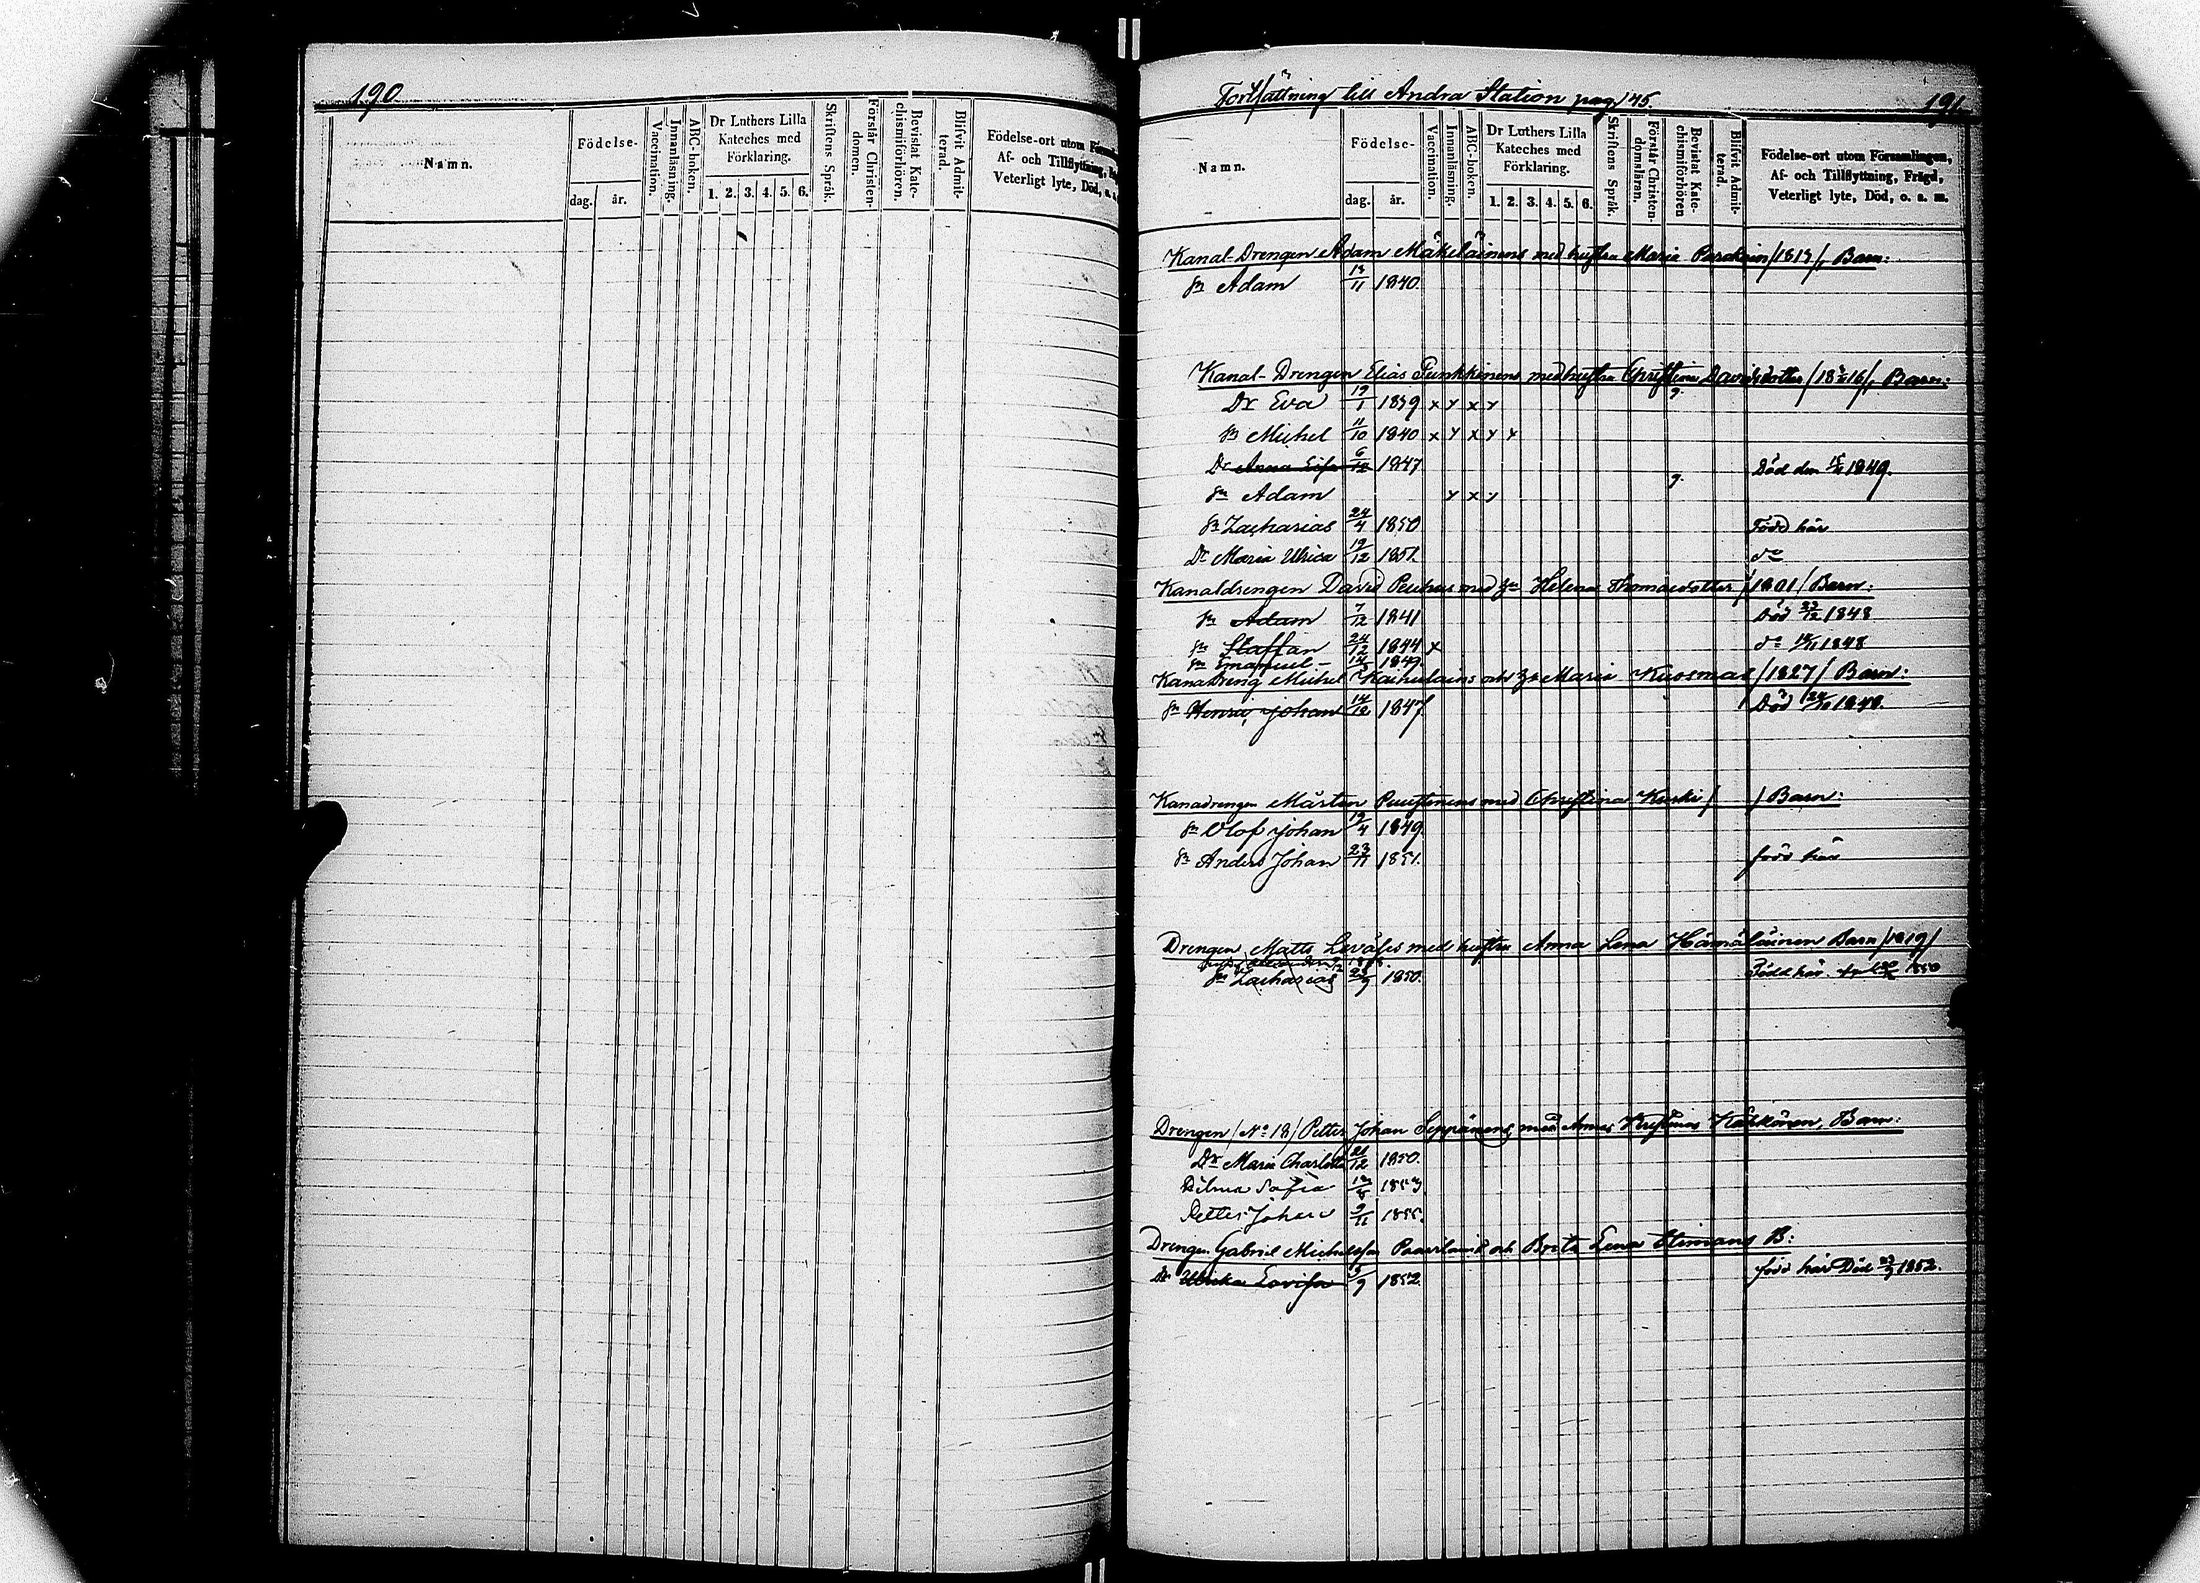 190
Namn.
Födelse-
dag. år.
Vaccination.
Innanläsning.
ABC-boken.
Dr Luthers Lilla
Kateches med
Förklaring.
1. 2. 3. 4. 5. 6.
Skriftens Språk.
Förstår Christen-
domen.
Bevistat Kate-
chismiförhören.
Blifvit Admit-
terad.
Födelse-ort utom
Af- och Tillflyttning,
Veterligt lyte, Död, o. s.
Fortsättning till Andra Station pag 45.
191.
Namn.
Födelse-
dag. år.
Vaccination.
Innanläsning.
ABC-boken.
Dr Luthers Lilla
Kateches med
Förklaring.
1. 2. 3. 4. 5. 6.
Skriftens Språk.
Förstår Christen-
domsläran.
Bevistat Kate-
chismiförhören
Blifvit Admit-
terad.
Födelse-ort utom Församlingen,
Af- och Tillflyttning, Frägd,
Veterligt lyte, Död, o. s. m.
Kanal-Drengen Adam Mäkeläinens med hustru Maria /1813/, Barn:
Sn Adam 13/11 1840.
Kanal-Drengen Elias Punkkinens med hustru Christina Davidsdotter Barn:
Dr Eva 19/1 1839 x x x x g.
Sn Michel 11/10 1840 x x x x x
Dr Anna Lisa 6/12 1847 Död den 1849.
Sn Adam x x x g.
Sn Zacharias 24/4 1850 Född här
Dr Maria Ulrica 19/12 1851. do
Kanaldrengen David med Helena Thomasdotter /1801/ Barn:
Sn Adam 7/12 1841 Död 23/12 1848
Sn Staffan 24/12 1844 x do 1848
Sn Emanuel - 1849.
Kanaldreng Michel och Maria Kuosmas /1827/ Barn:
Sn Henric Johan 14/12 1847. Död 1849.
Kanadrengen Mårten med Christina Kurki / / Barn:
Sn Olof Johan 19/4 1849
Sn Anders Johan 23/11 1851. född här
Drengen Matts med hustru Anna Lena Hämäläinen Barn /1819/
Sn Zacharias 23/9 1850. Född här 1850
Drengen /No 18/ Petter Johan Seppänens med Anna Kristina Barn:
Dr Maria Charlotta 21/12 1850.
Vilma Sofia 1853
Petter Johan 9/11 1855.
Drengen Gabriel och Brita Lena B:
Dr Ulrika Lovisa 5/9 1852. född här Död 23/9 1852.